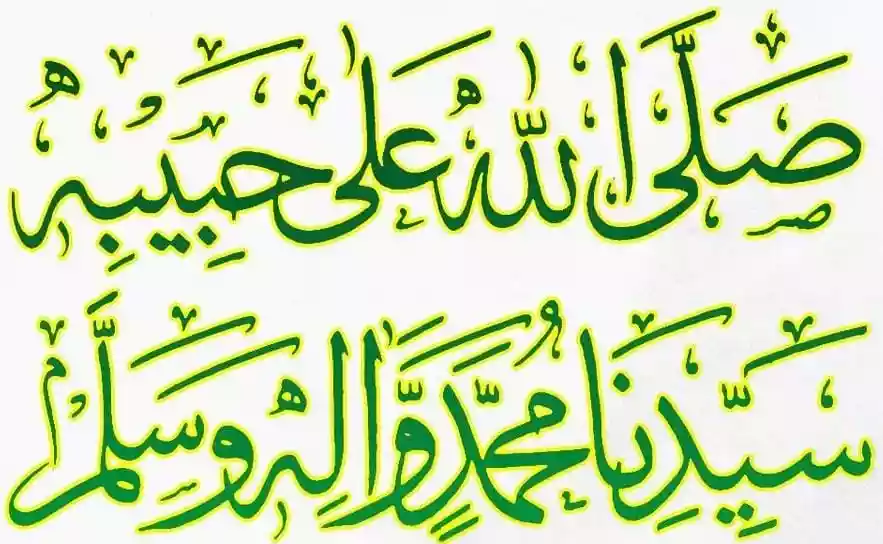 صَلَّى اللهُ عَلَى حَبِيبِهٖ
سَيِّدِنَا مُحَمَّدٍ وَّاٰلِهٖ وَسَلَّمْ